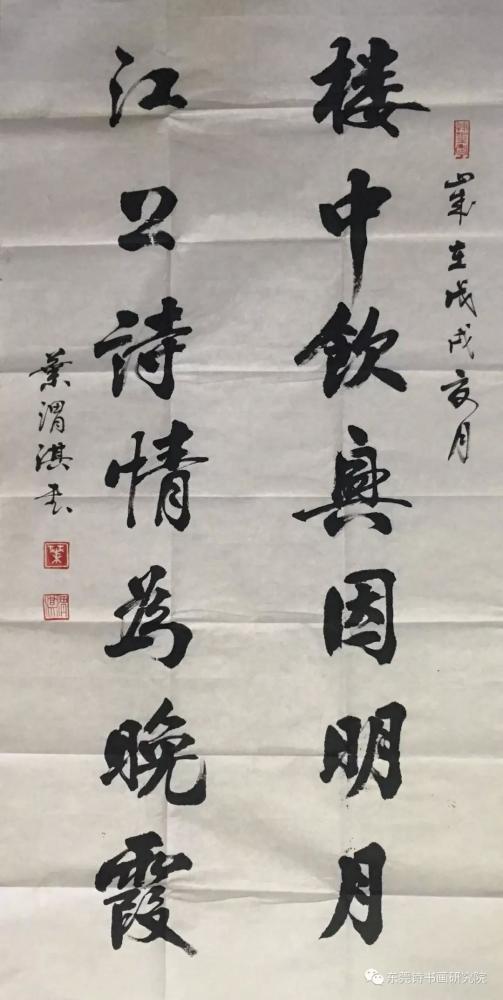 楼中飲興因明月
江上詩情為晚霞
歲在戊戌夏月
葉渭淇書
葉
渭淇
东莞诗书画研究院